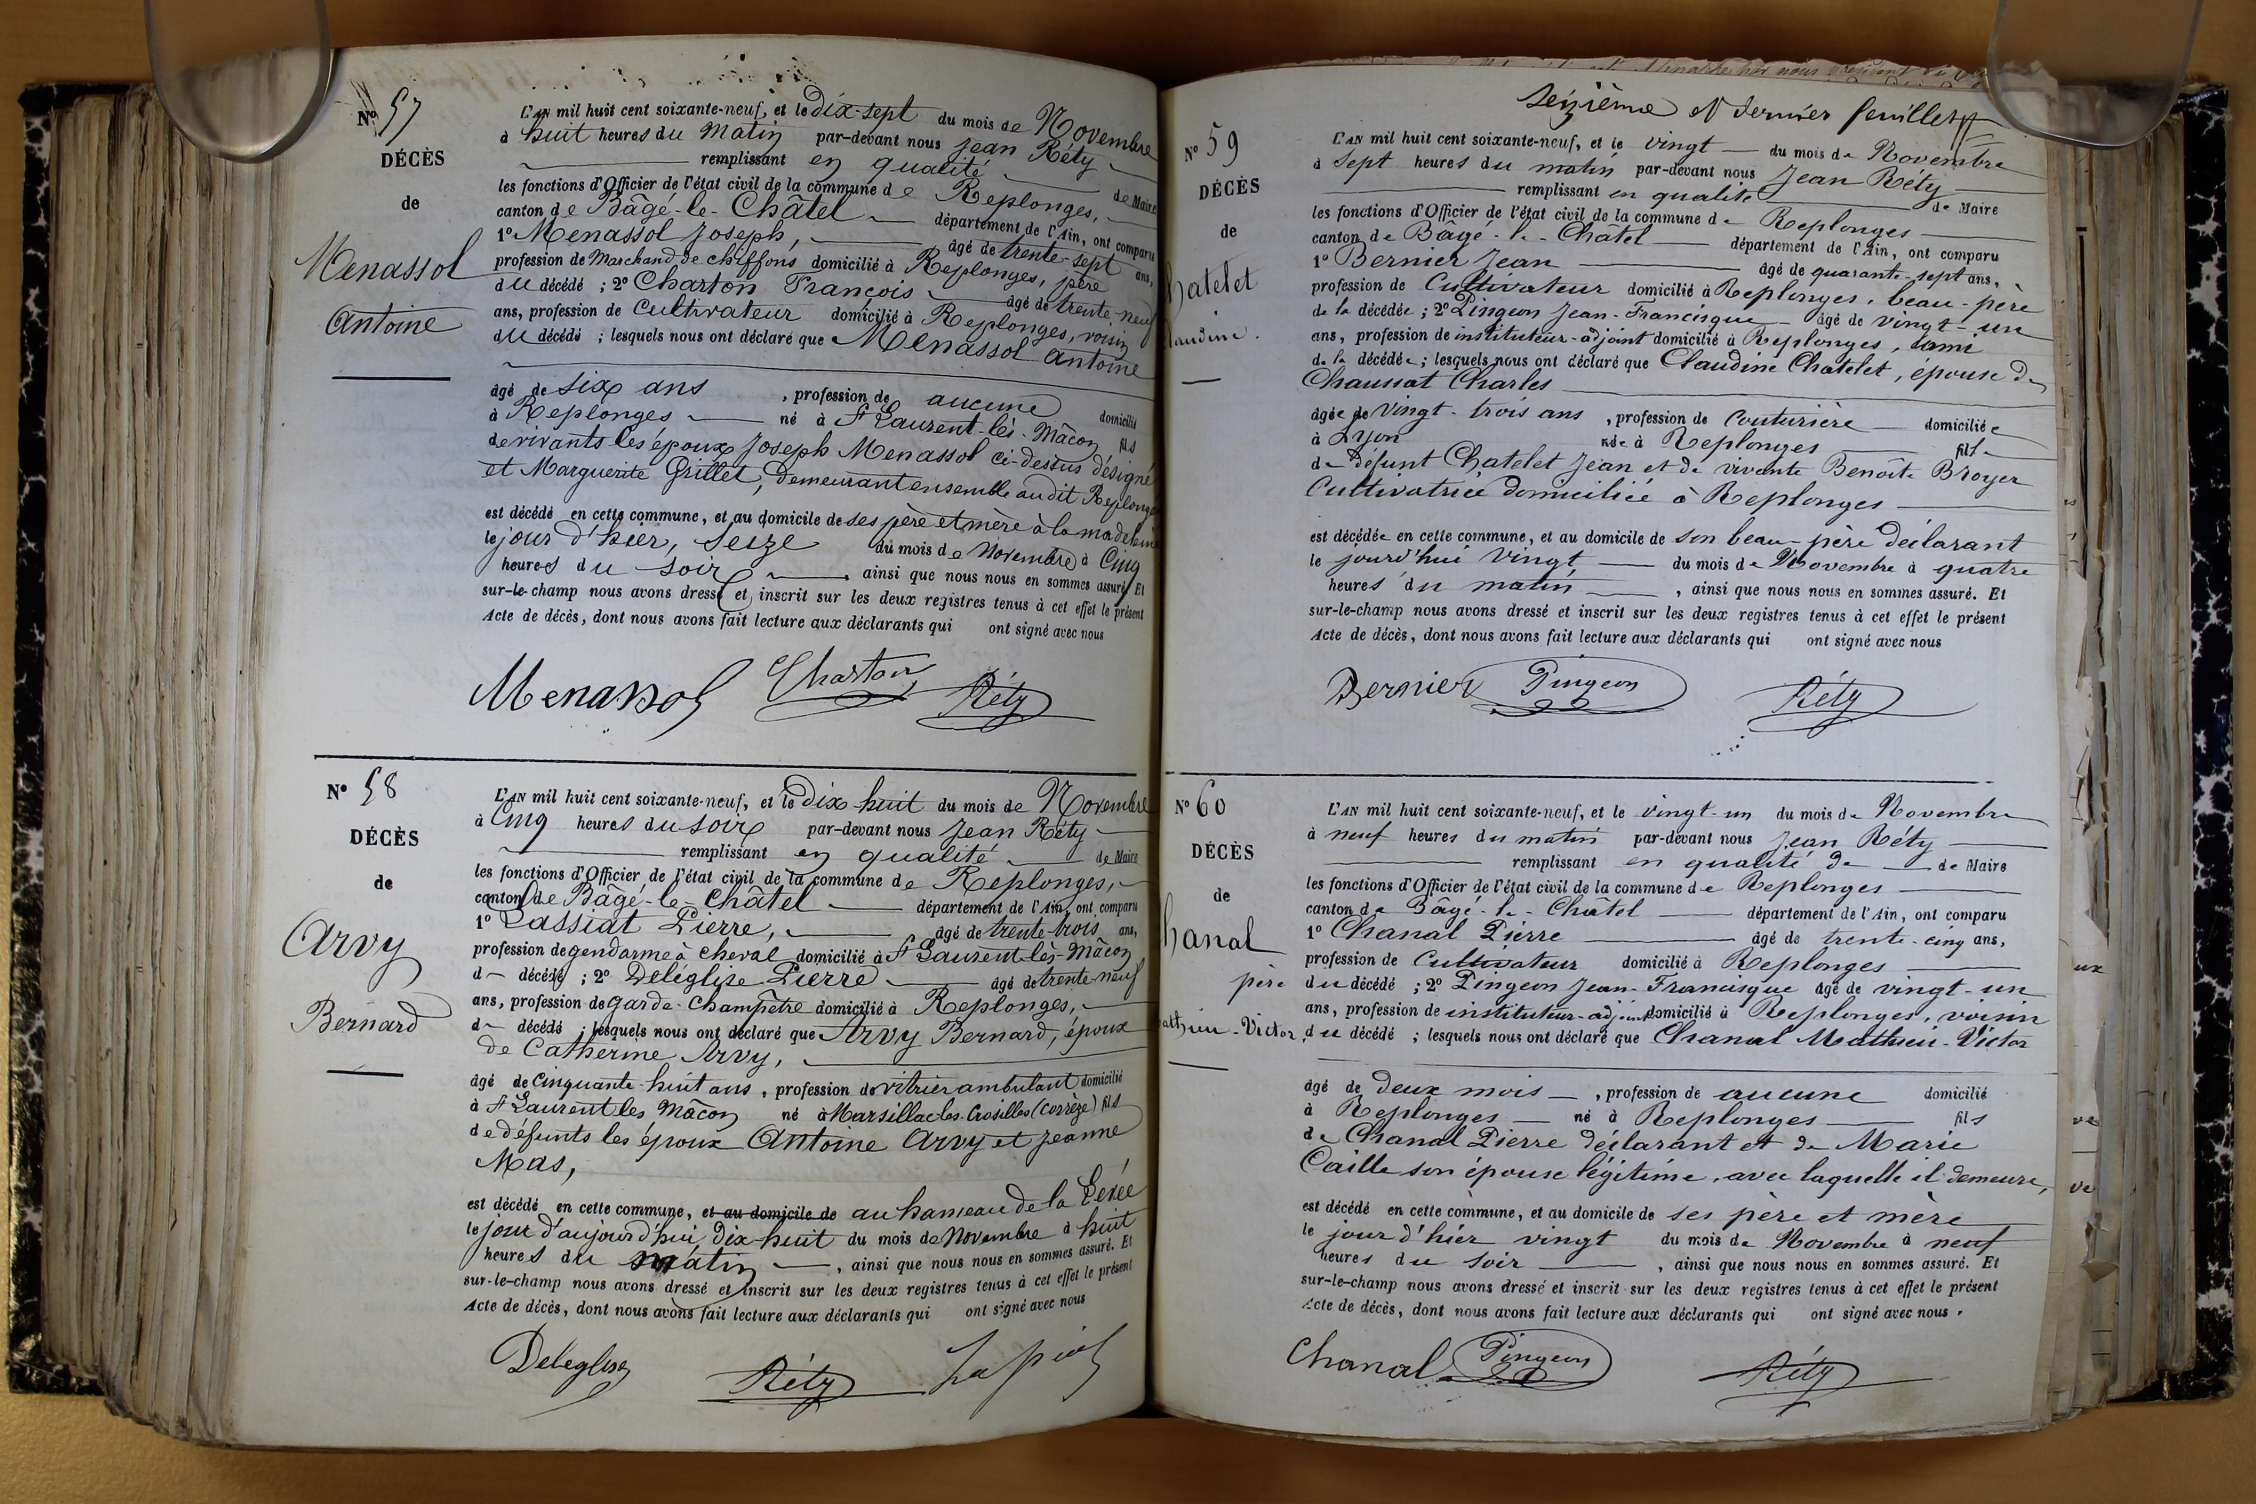 Nº 57
DÉCÈS
de
Menassol
Antoine
L'AN mil huit cent soixante-neuf, et le dix-sept du mois de Novembre
à huit heures du matin par-devant nous Jean Réty
remplissant en qualité de Maire
les fonctions d'Officier de l'état civil de la commune de Replonges,
canton de Bâgé-le-Châtel département de l'Ain, ont comparu
1º Menassol Joseph, âgé de trente-sept ans,
profession de Marchand de chiffons domicilié à Replonges, père
du décédé ; 2º Charton François âgé de trente-neuf
ans, profession de Cultivateur domicilié à Replonges, voisin
du décédé ; lesquels nous ont déclaré que Menassol Antoine
âgé de six ans , profession de aucune domicilié
à Replonges né à St Laurent-lès-Mâcon fils
de vivants les époux Joseph Menassol ci-dessus désigné
et Marguerite Grillet, demeurant ensemble audit Replonges
est décédé en cette commune, et au domicile de ses père et mère à la madeleine
le jour d'hier, seize du mois de Novembre à Cinq
heures du soir , ainsi que nous nous en sommes assuré. Et
sur-le-champ nous avons dressé et inscrit sur les deux registres tenus à cet effet le présent
Acte de décès, dont nous avons fait lecture aux déclarants qui ont signé avec nous
Menassol Charton Réty
Nº 58
DÉCÈS
de
Arvy
Bernard
L'AN mil huit cent soixante-neuf, et le dix-huit du mois de Novembre
à Cinq heures du soir par-devant nous Jean Réty
remplissant en qualité de Maire
les fonctions d'Officier de l'état civil de la commune de Replonges,
canton de Bâgé-le-Châtel département de l'Ain, ont comparu
1º Lassiat Pierre, âgé de trente-trois ans,
profession de gendarme à cheval domicilié à St Laurent-lès-Mâcon
d décédé ; 2º Deléglise Pierre âgé de trente-neuf
ans, profession de garde-champêtre domicilié à Replonges,
d décédé ; lesquels nous ont déclaré que Arvy Bernard, époux
de Catherine Arvy,
âgé de cinquante-huit ans , profession de vitrier ambulant domicilié
à St Laurent les Mâcon né à Marsillac les Crosilles (Corrèze) fils
de défunts les époux Antoine Arvy et Jeanne
Mas,
est décédé en cette commune, et au domicile de au hameau de la
le jour d'aujourd'hui dix-huit du mois de Novembre à huit
heures du matin , ainsi que nous nous en sommes assuré. Et
sur-le-champ nous avons dressé et inscrit sur les deux registres tenus à cet effet le présent
Acte de décès, dont nous avons fait lecture aux déclarants qui ont signé avec nous
Deleglise Réty
Seizième et dernier feuillet
Nº 59
DÉCÈS
de
hatelet
laudine.
L'AN mil huit cent soixante-neuf, et le vingt du mois de Novembre
à sept heures du matin par-devant nous Jean Réty
remplissant en qualité de Maire
les fonctions d'Officier de l'état civil de la commune de Replonges
canton de Bâgé-le-Châtel département de l'Ain, ont comparu
1º Bernier Jean âgé de quarante-sept ans,
profession de Cultivateur domicilié à Replonges, beau-père
de la décédée ; 2º Pingeon Jean-Francisque âgé de vingt-un
ans, profession de instituteur-adjoint domicilié à Replonges, ami
de la décédée ; lesquels nous ont déclaré que Claudine Chatelet, épouse de
Chaussat Charles
âgée de vingt-trois ans , profession de couturière domiciliée
à Lyon née à Replonges fille
de défunt Chatelet Jean et de vivante Benoîte Broyer
Cultivatrice domiciliée à Replonges
est décédée en cette commune, et au domicile de son beau-père déclarant
le jourd'hui vingt du mois de Novembre à quatre
heures du matin , ainsi que nous nous en sommes assuré. Et
sur-le-champ nous avons dressé et inscrit sur les deux registres tenus à cet effet le présent
Acte de décès, dont nous avons fait lecture aux déclarants qui ont signé avec nous
Bernier Pingeon Réty
Nº 60
DÉCÈS
de
hanal
père
athieu-Victor
L'AN mil huit cent soixante-neuf, et le vingt-un du mois de Novembre
à neuf heures du matin par-devant nous Jean Réty
remplissant en qualité de de Maire
les fonctions d'Officier de l'état civil de la commune de Replonges
canton de Bâgé-le-Châtel département de l'Ain, ont comparu
1º Chanal Pierre âgé de trente-cinq ans,
profession de Cultivateur domicilié à Replonges
du décédé ; 2º Pingeon Jean-Francisque âgé de vingt-un
ans, profession de instituteur-adjoint domicilié à Replonges, voisin
du décédé ; lesquels nous ont déclaré que Chanal Mathieu-Victor
âgé de deux mois , profession de aucune domicilié
à Replonges né à Replonges fils
de Chanal Pierre déclarant et de Marie
Caille son épouse légitime, avec laquelle il demeure,
est décédé en cette commune, et au domicile de ses père et mère
le jour d'hier vingt du mois de Novembre à neuf
heures du soir , ainsi que nous nous en sommes assuré. Et
sur-le-champ nous avons dressé et inscrit sur les deux registres tenus à cet effet le présent
Acte de décès, dont nous avons fait lecture aux déclarants qui ont signé avec nous.
Chanal Pingeon Réty